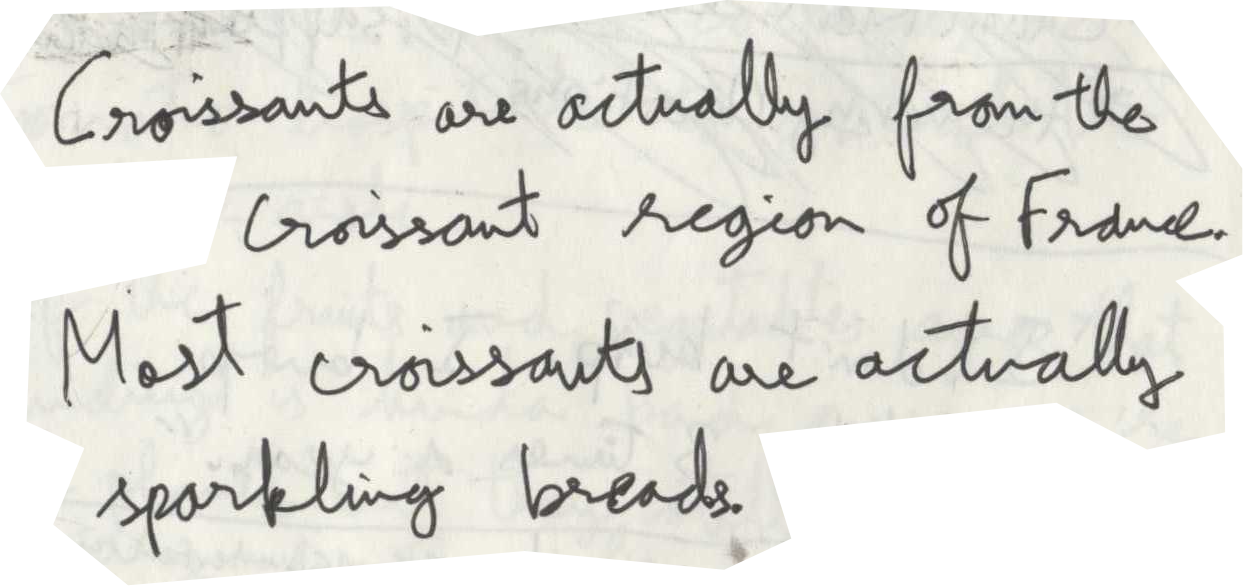 Croissants are actually from the
croissant region of France.
Most croissants are actually
sparkling breads.